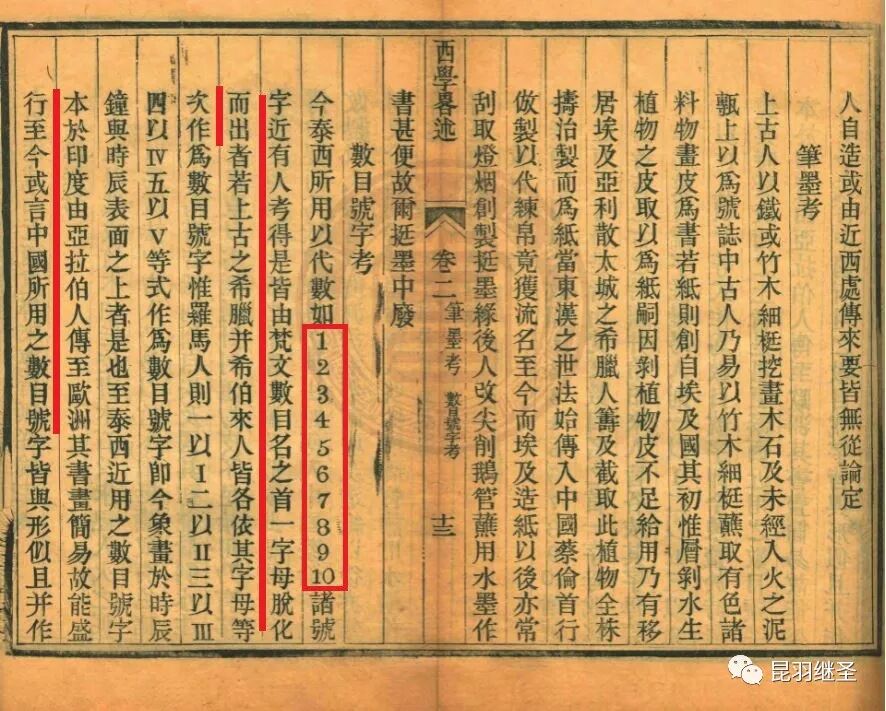 人自造或由近西處傳來要皆無從論定
筆墨考
上古人以鐵或竹木細梃挖畫木石及未經入火之泥
甎上以爲號誌中古人乃易以竹木細梃蘸取有色諸
料物畫皮爲書若紙則創自埃及國其初惟層剝水生
植物之皮取以爲紙嗣因剝植物皮不足給用乃有移
居埃及亞利散太城之希臘人籌及截取此植物全株
擣治製而爲紙當東漢之世法始傳入中國蔡倫首行
倣製以代練帛竟獲流名至今而埃及造紙以後亦常
刮取燈烟創製挺墨緣後人改尖削鵝管蘸用水墨作
西學畧述 卷二 筆墨考 數目號字考 十三
書甚便故爾挺墨中廢
數目號字考
今泰西所用以代數如1 2 3 4 5 6 7 8 9 10諸號
字近有人考得是皆由梵文數目名之首一字母脫化
而出者若上古之希臘并希伯來人皆各依其字母等
次作爲數目號字惟羅馬人則一以I二以II三以III
四以IV五以V等式作爲數目號字卽今象畫於時辰
鐘與時辰表面之上者是也至泰西近用之數目號字
本於印度由亞拉伯人傳至歐洲其書畫簡易故能盛
行至今或言中國所用之數目號字皆與形似且并作
昆羽继圣